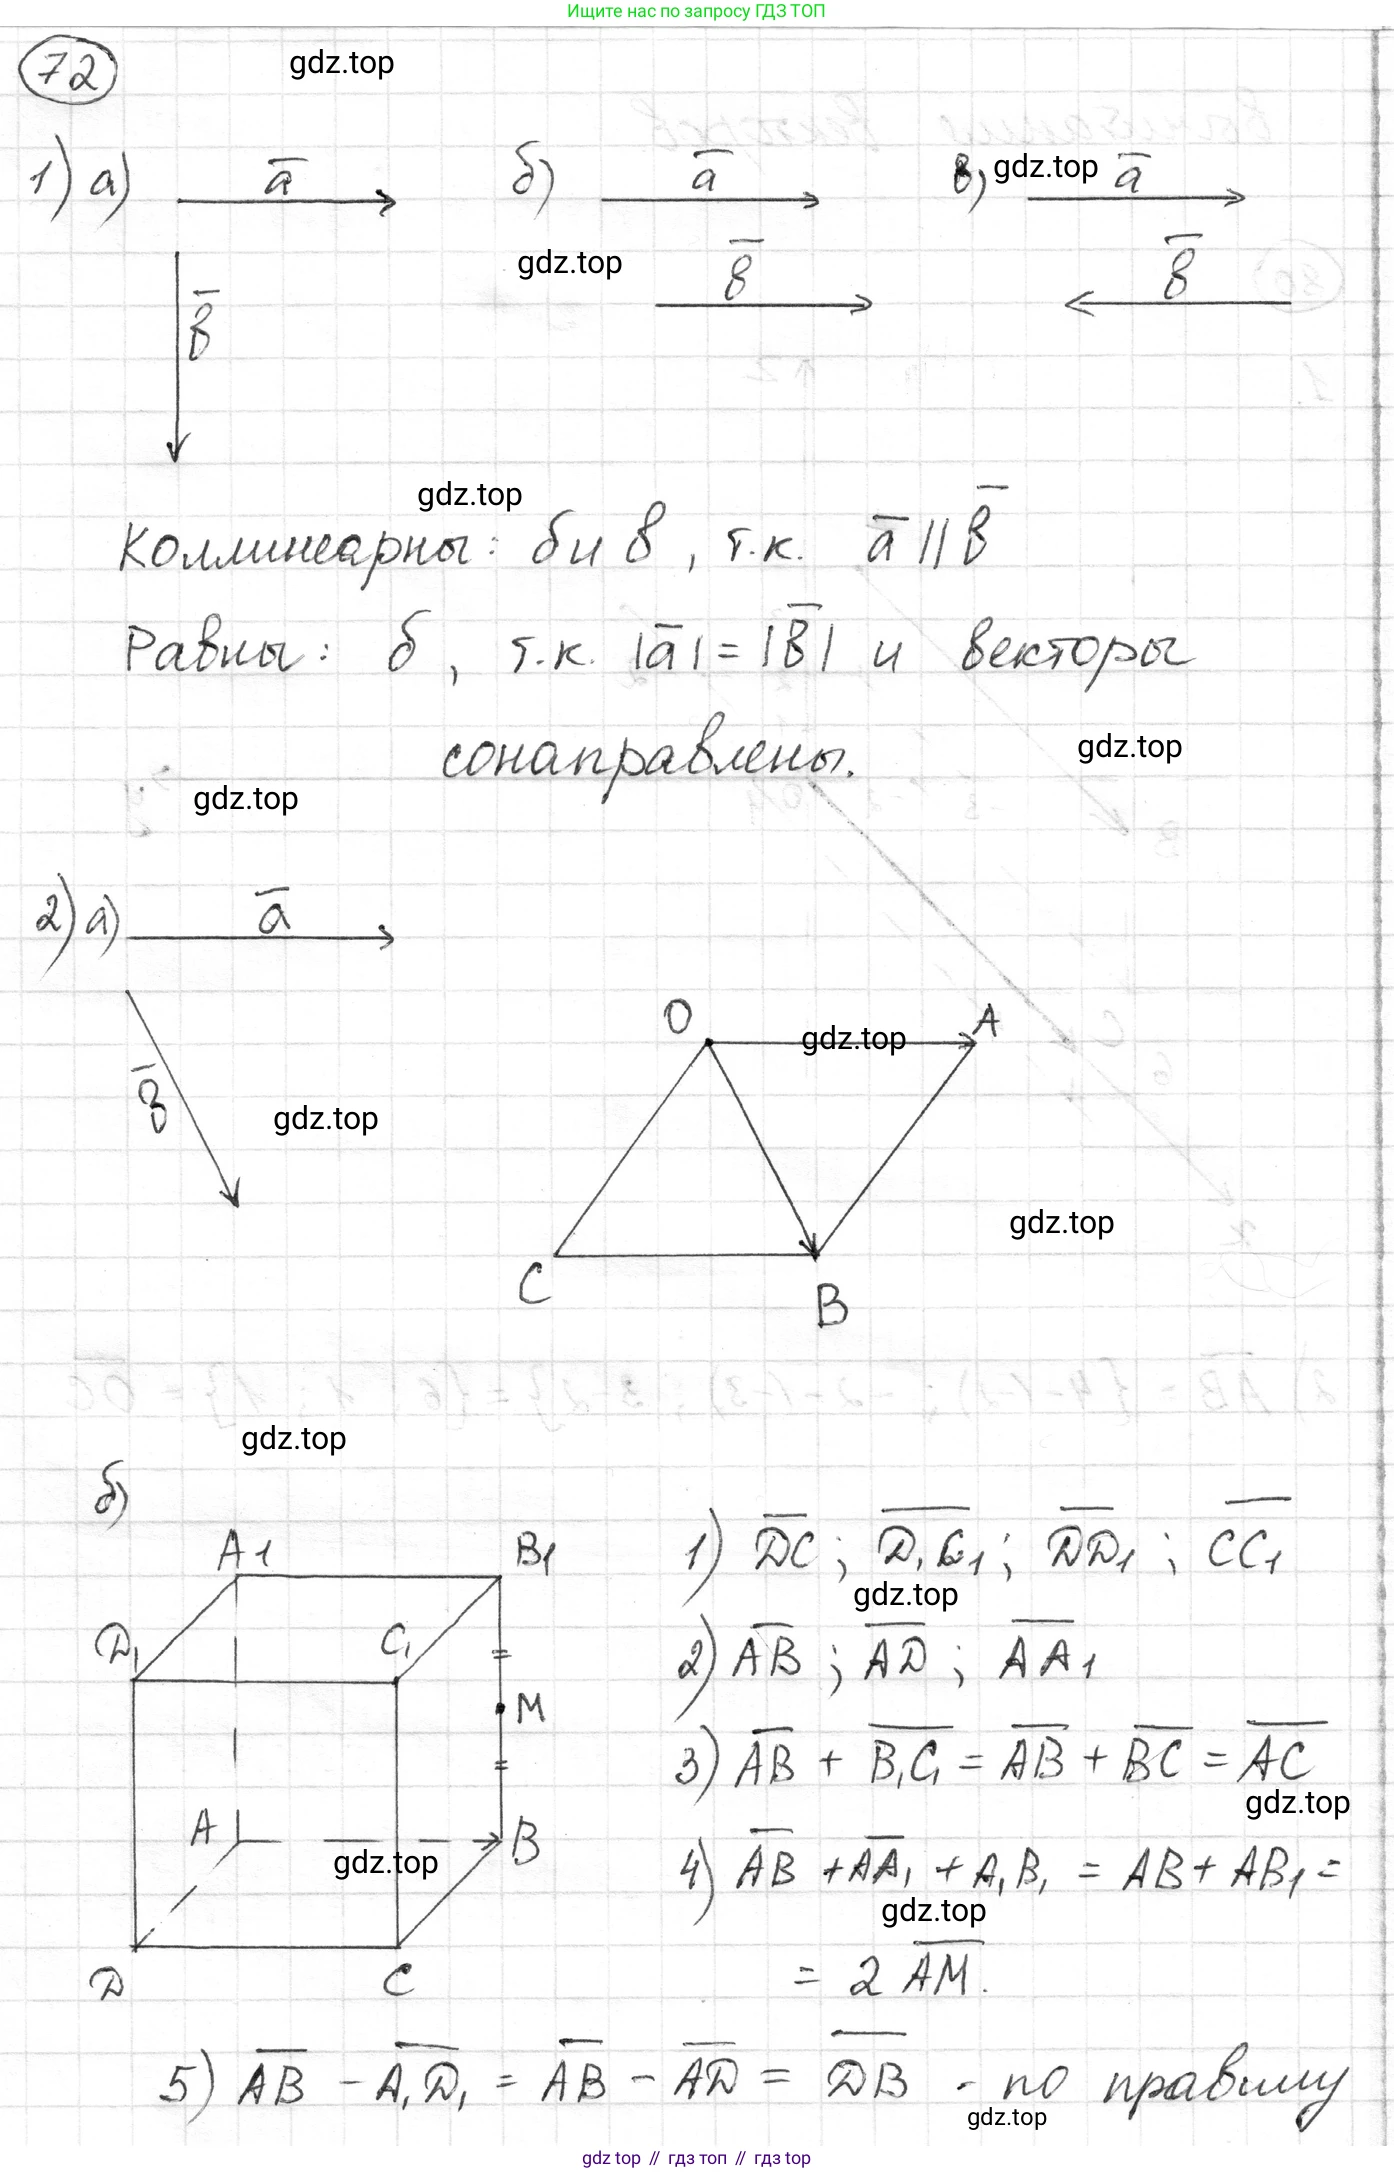 Ищите нас по запросу ГДЗ ТОП
72
gdz.top
1) а) a̅ б) a̅ в) gdz.top a̅
b̅ gdz.top b̅ b̅
gdz.top
Коллинеарны: б и в, т.к. a̅ || b̅
Равны: б, т.к. |a̅| = |b̅| и векторы
сонаправлены.
gdz.top
gdz.top
2) а) a̅
b̅
gdz.top
O gdz.top A
gdz.top
C B
gdz.top
б)
A1 B1
D1 C1
M
A B
gdz.top
D C
1) D̅C̅; D̅₁C̅₁; D̅D̅₁; C̅C̅₁
gdz.top
2) A̅B̅; A̅D̅; A̅A̅₁
3) A̅B̅ + B̅₁C̅₁ = A̅B̅ + B̅C̅ = A̅C̅
gdz.top
4) A̅B̅ + A̅A̅₁ + A₁B₁ = AB + AB₁ =
gdz.top
= 2 A̅M̅.
5) A̅B̅ - A̅₁D̅₁ = A̅B̅ - A̅D̅ = D̅B̅ - по правилу
gdz.top
gdz top // гдз топ // гдз top